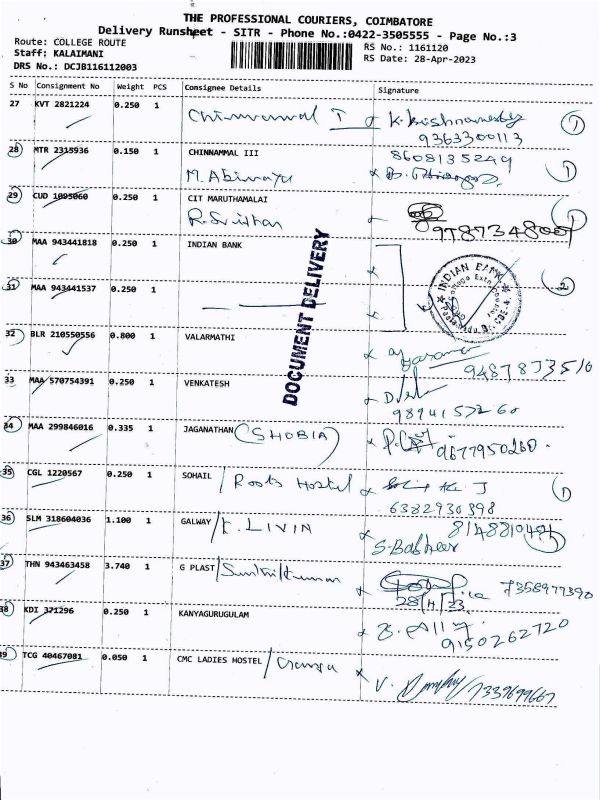 THE PROFESSIONAL COURIERS, COIMBATORE
Delivery Runsheet - SITR - Phone No.:0422-3505555 - Page No.:3
Route: COLLEGE ROUTE RS No.: 1161120
Staff; KALAIMANI RS Date: 28-Apr-2023
DRS No.: DCJB116112003
S No Consignment No Weight PCS Consignee Details Signature
27 KVT 2821224 0.250 1 Chinnammal I
9363300113 1
28 MTR 2315936 0.150 1 CHINNAMMAL III 8608135249
M. Abinaya 1
29 CUD 1095060 0.250 1 CIT MARUTHAMALAI
30 MAA 943441818 0.250 1 INDIAN BANK
INDIAN BANK
31 MAA 943441537 0.250 1 2
DOCUMENT DELIVERY
32 BLR 210550556 0.800 1 VALARMATHI
33 MAA 570754391 0.250 1 VENKATESH
34 MAA 299846016 0.335 1 JAGANATHAN (SHOBIA) 9677950260
35 CGL 1220567 0.250 1 SOHAIL / Roots Hostel 1
6382930398
36 SLM 318604036 1.100 1 GALWAY / K. LIVIN
37 THN 943463458 3.740 1 G PLAST / 7358977390
28/4/23
38 KDI 371296 0.250 1 KANYAGURUGULAM
9150262720
39 TCG 40467081 0.050 1 CMC LADIES HOSTEL /
7339699667